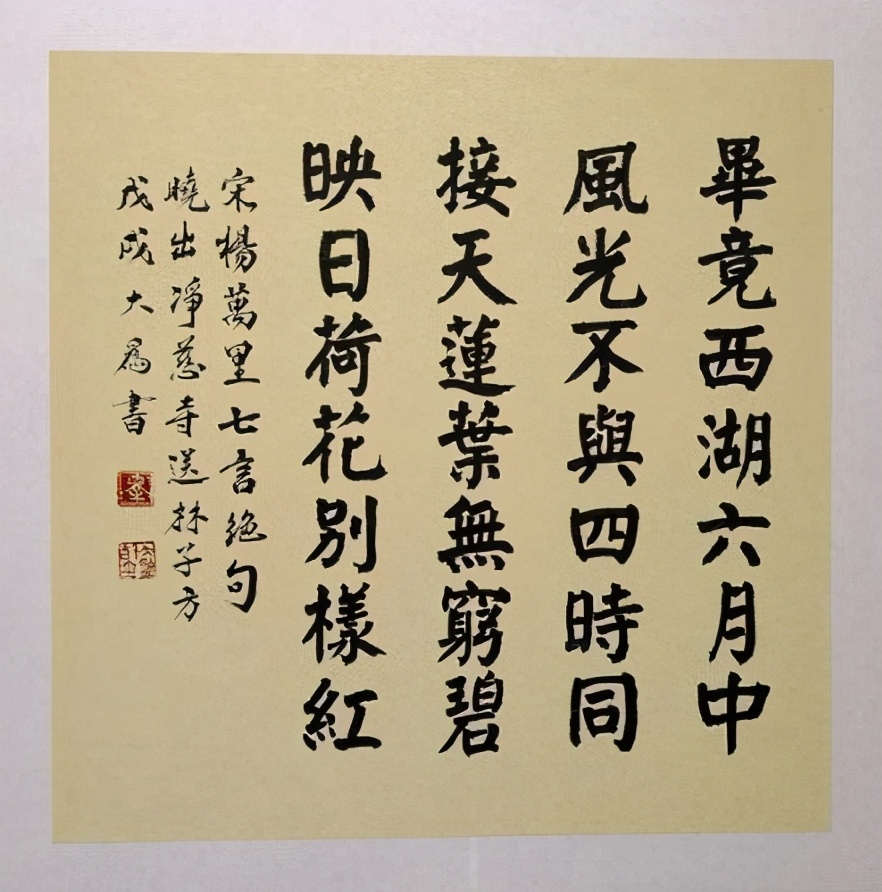 畢竟西湖六月中
風光不與四時同
接天蓮葉無窮碧
映日荷花别樣紅
宋楊萬里七言絶句
曉出淨慈寺送林子方
戊戌大為書